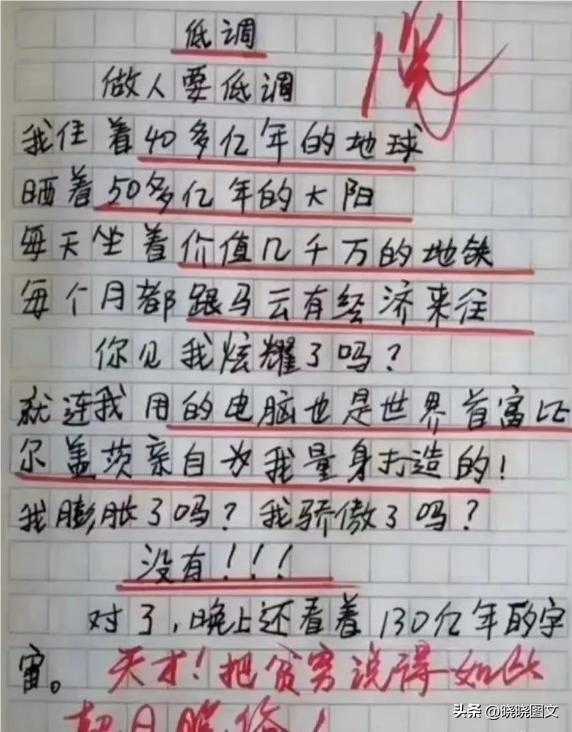 低调
做人要低调
我住着40多亿年的地球
晒着50多亿年的太阳
每天坐着价值几千万的地铁
每个月都跟马云有经济来往
你见我炫耀了吗？
就连我用的电脑也是世界首富比
尔盖茨亲自为我量身打造的！
我膨胀了吗？我骄傲了吗？
没有！！！
对了，晚上还看着130亿年的宇
宙。天才！把贫穷说得如此
头条 @晓晓图文